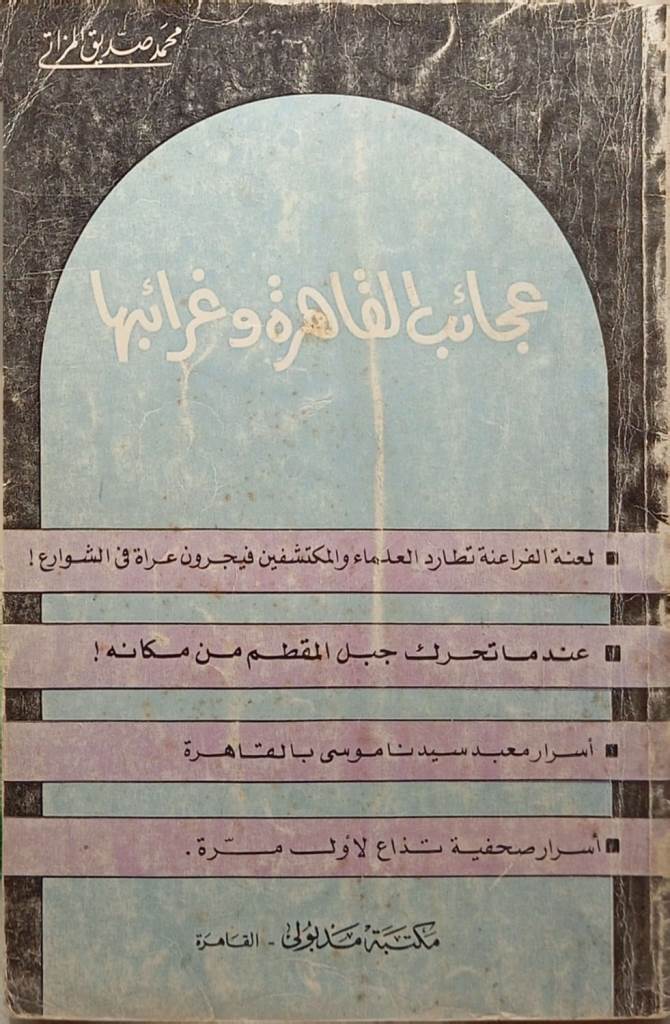 محمد صديق المزاتي
عجائب القاهرة وغرائبها
لعنة الفراعنة تطارد العلماء والمكتشفين فيجرون عراة فى الشوارع !
عندما تحرك جبل المقطم من مكانه !
أسرار معبد سيدنا موسى بالقاهرة
أسرار صحفية تذاع لأول مرّة .
مكتبة مدبولى - القاهرة